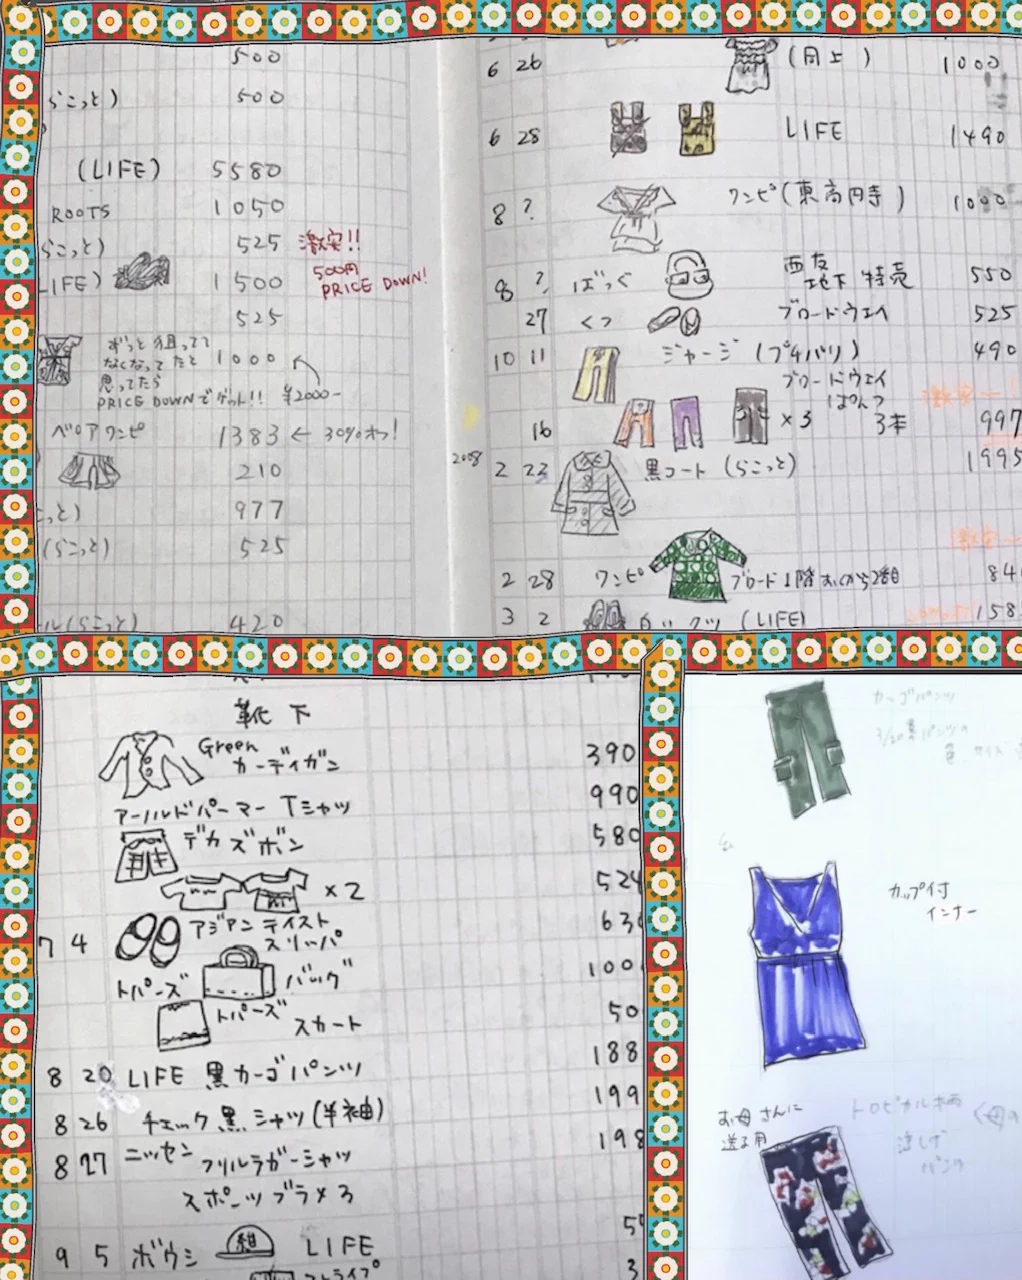 500
らこっと) 500
(LIFE) 5580
ROOTS 1050
らこっと) 525 激安!!
500円
PRICE DOWN!
LIFE) 1500
525
ずっと狙ってて
なくなってたと
思ってたら
PRICE DOWNでゲット!! ¥2000-
1000
ベロアワンピ 1383 ← 30%オフ!
210
こっと) 977
(らこっと) 525
ル(らこっと) 420
6 26 (同上) 1000
6 28 LIFE 1490
8 ? ワンピ(東高円寺) 1000
8 ? ばっぐ 西友
地下 特売 550
27 くつ ブロードウェイ 525
10 11 ジャージ(プチバリ) 490
ブロードウェイ
ぱんつ
16 ×3 3本 997
激安ー!
2008
2 23 黒コート(らこっと) 1995
激安ー
2 28 ワンピ ブロード1階おくから2番目 84
3 2 (LIFE) 158
靴下
Green
カーディガン 390
アーノルドパーマー Tシャツ 990
デカズボン 580
×2 524
7 4 アジアンテイスト
スリッパ 630
トパーズ バッグ 100
トパーズ スカート 50
8 20 LIFE 黒カーゴパンツ 188
8 26 チェック黒シャツ(半袖) 199
8 27 ニッセン フリルラガーシャツ 198
スポーツブラ×3
9 5 ボウシ 紺 LIFE 5
ストライプ 3
カーゴパンツ
3/20黒パンツの
色 サイズ
カップ付
インナー
お母さんに
送る用
トロピカル柄
涼しげ
パンツ